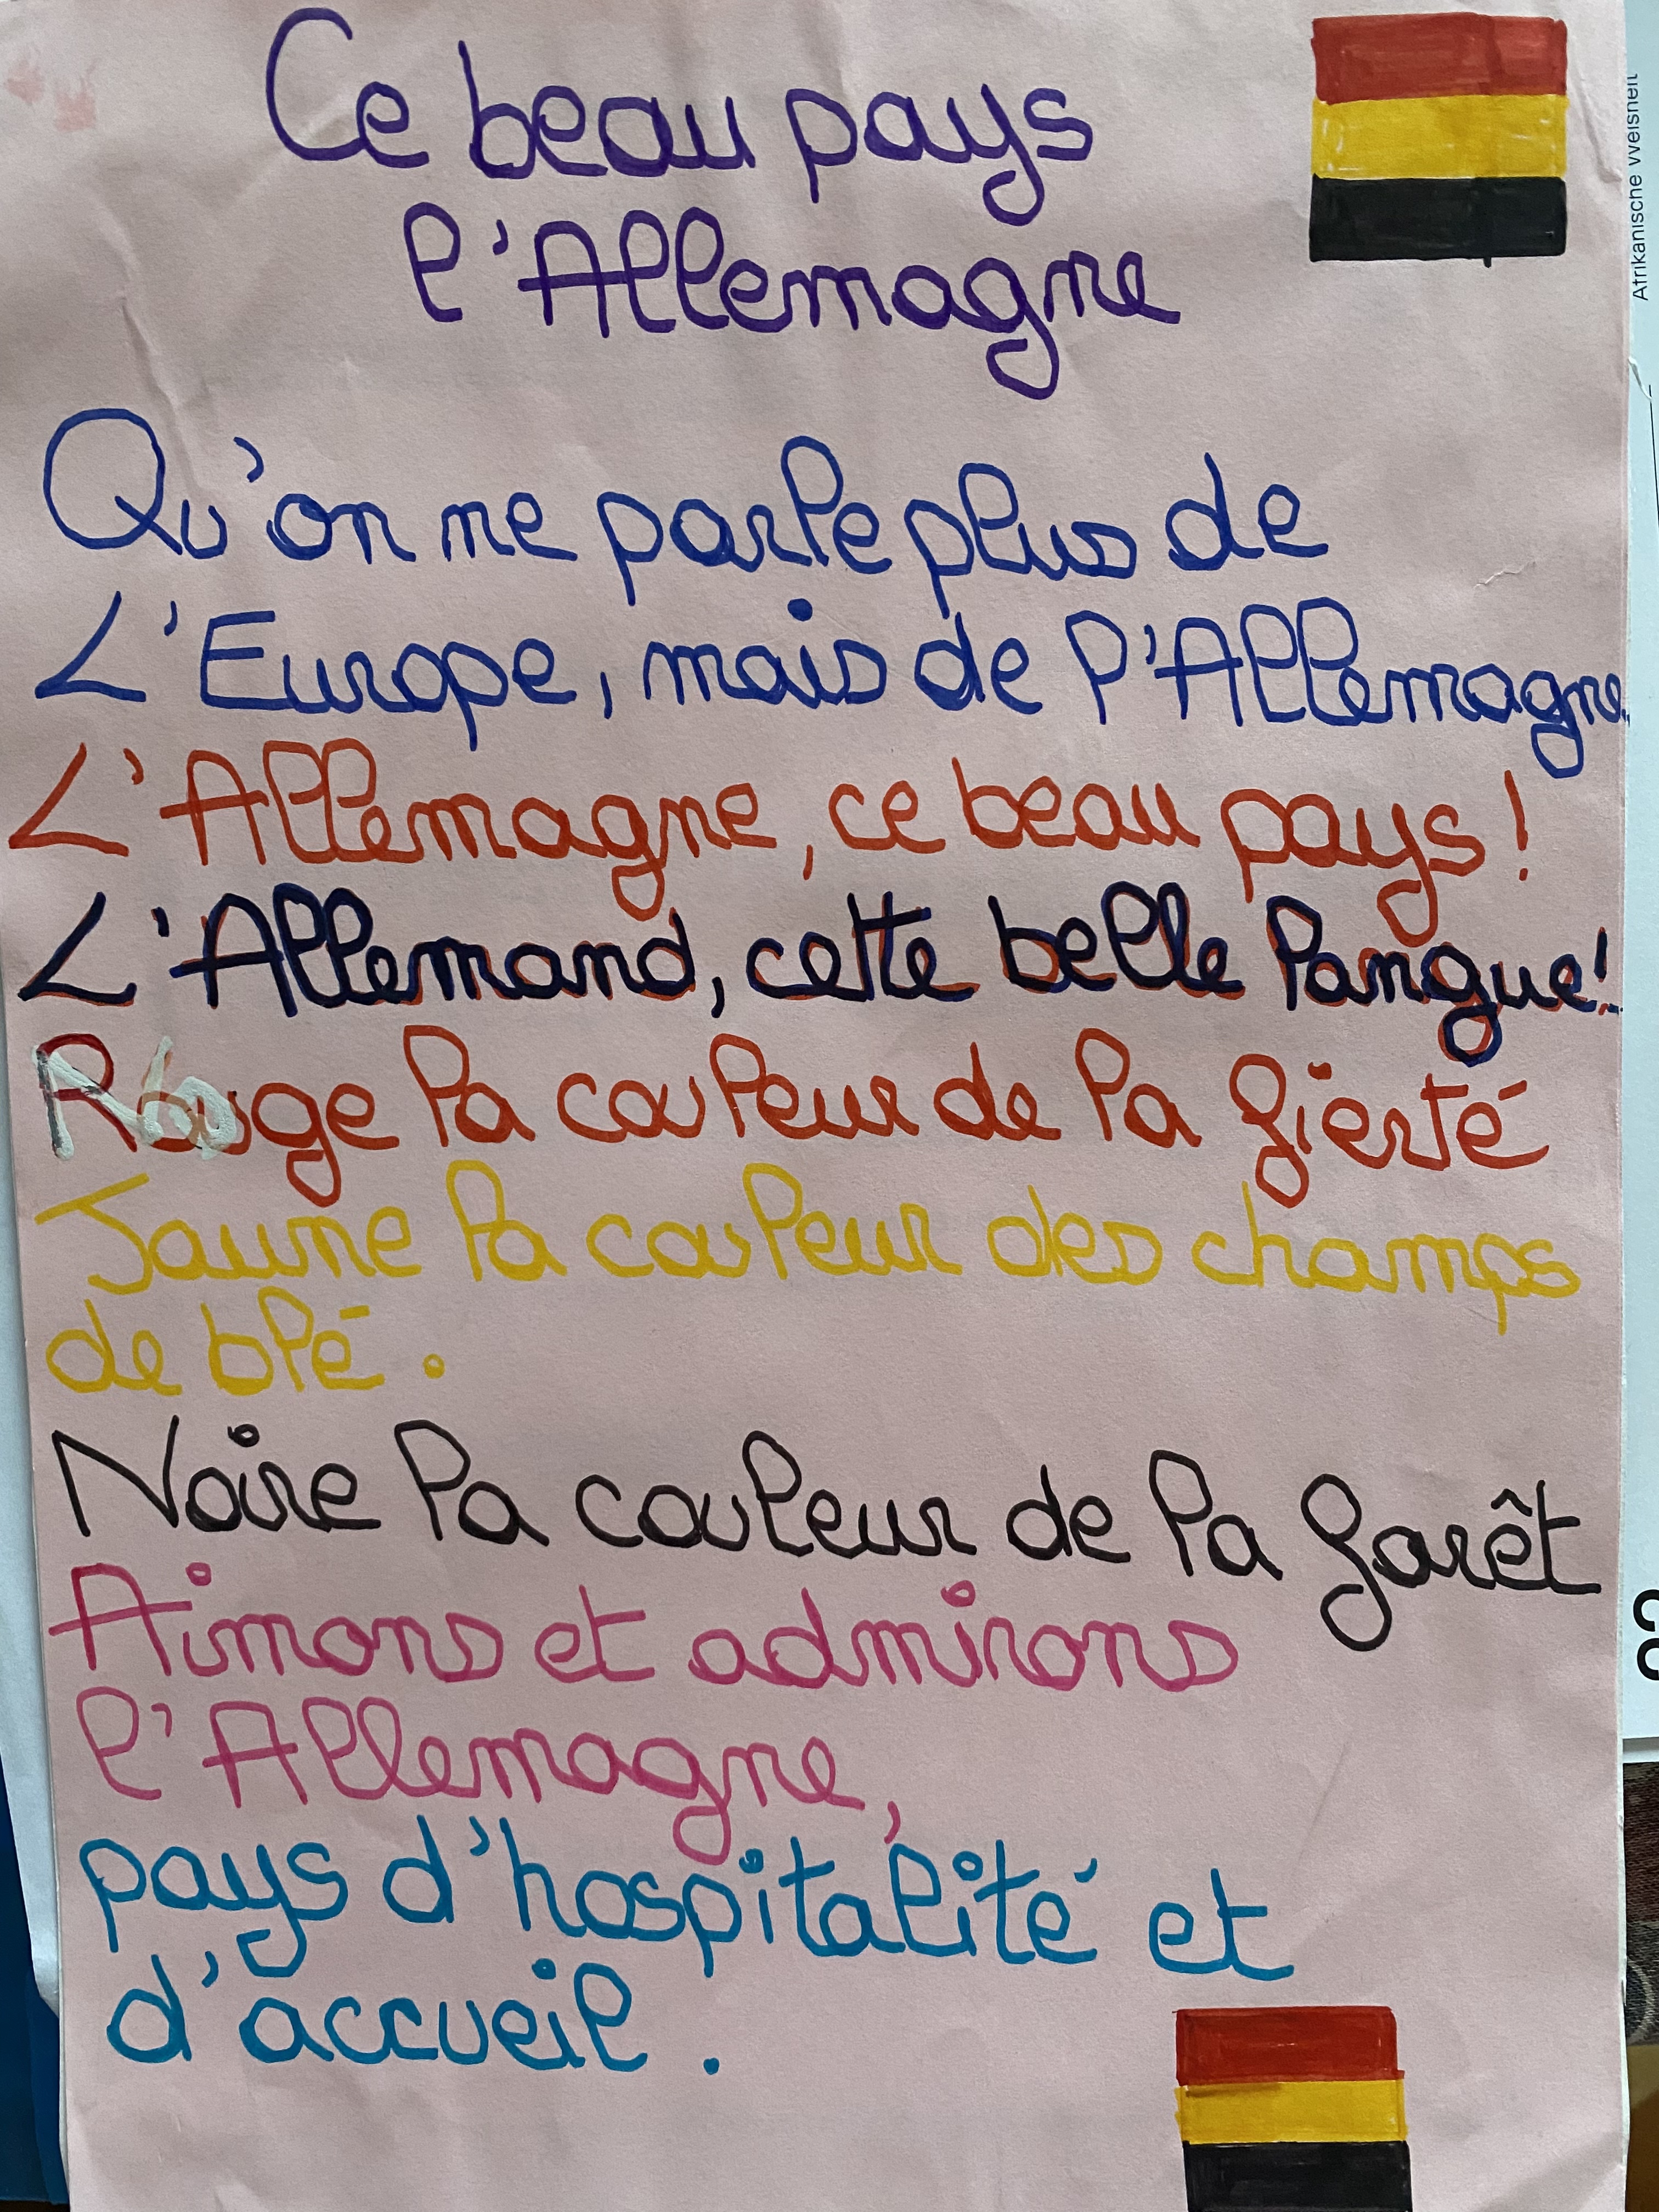 Ce beau pays
l'Allemagne
Qu'on me parle plus de
L'Europe, mais de l'Allemagne.
L'Allemagne, ce beau pays !
L'Allemand, cette belle langue !
Rouge la couleur de la fierté
Jaune la couleur des champs
de blé .
Noire la couleur de la forêt
Aimons et admirons
l'Allemagne,
pays d'hospitalité et
d'accueil .
Afrikanische Weisheit